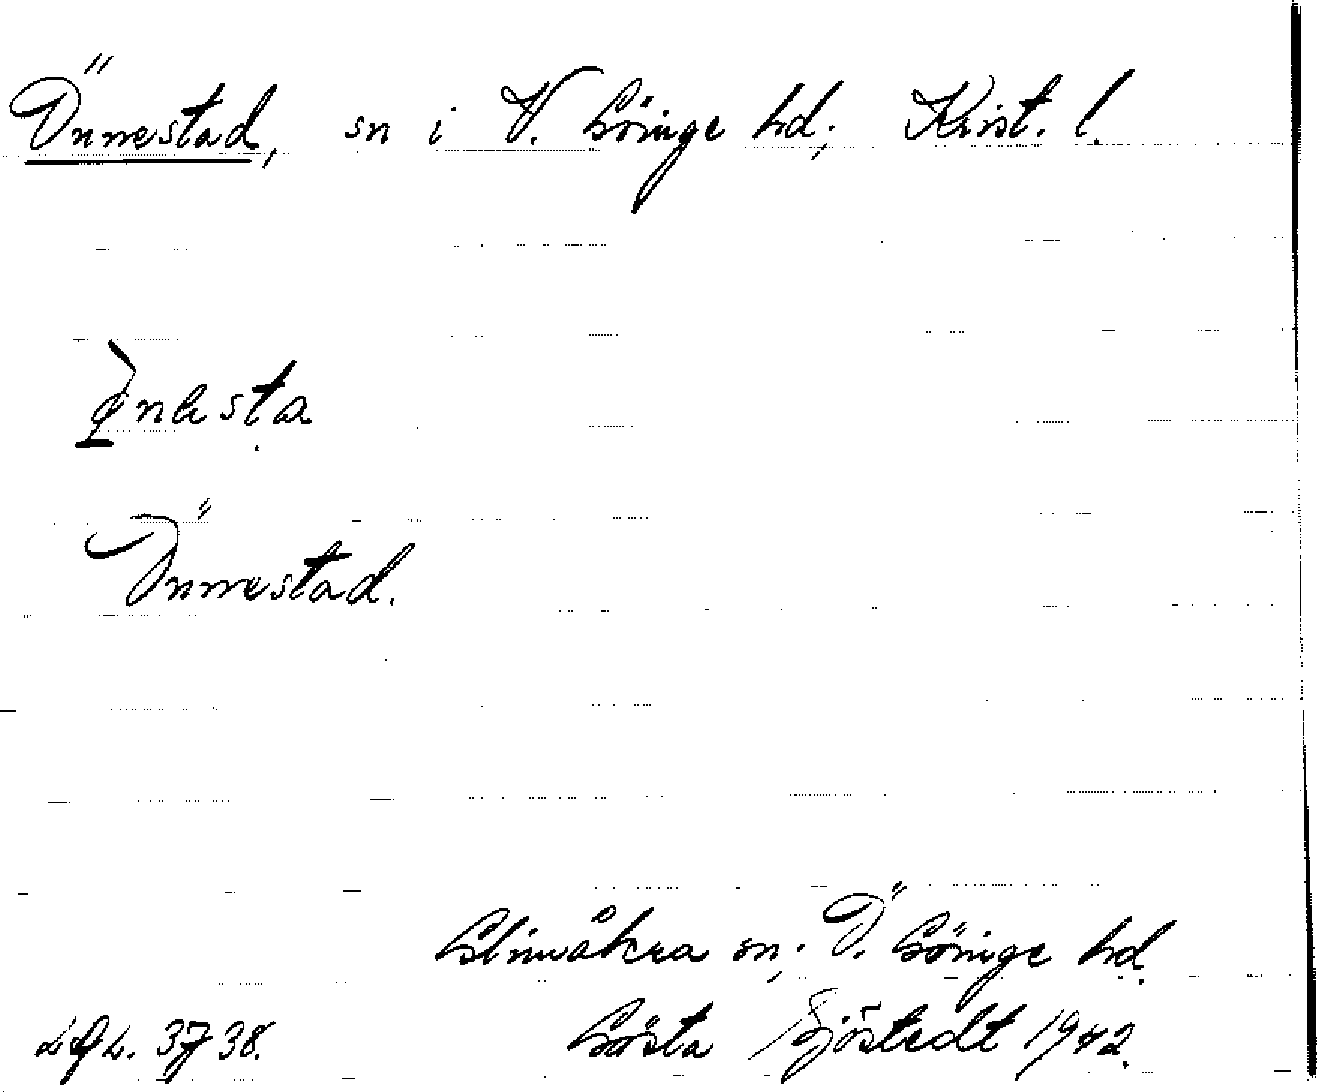 Önnestad, sn i V. Göinge hd; Krist. l.
Önnestad.
Glimåkra sn; Ö. Göinge hd.
Gösta Sjöstedt 1942.